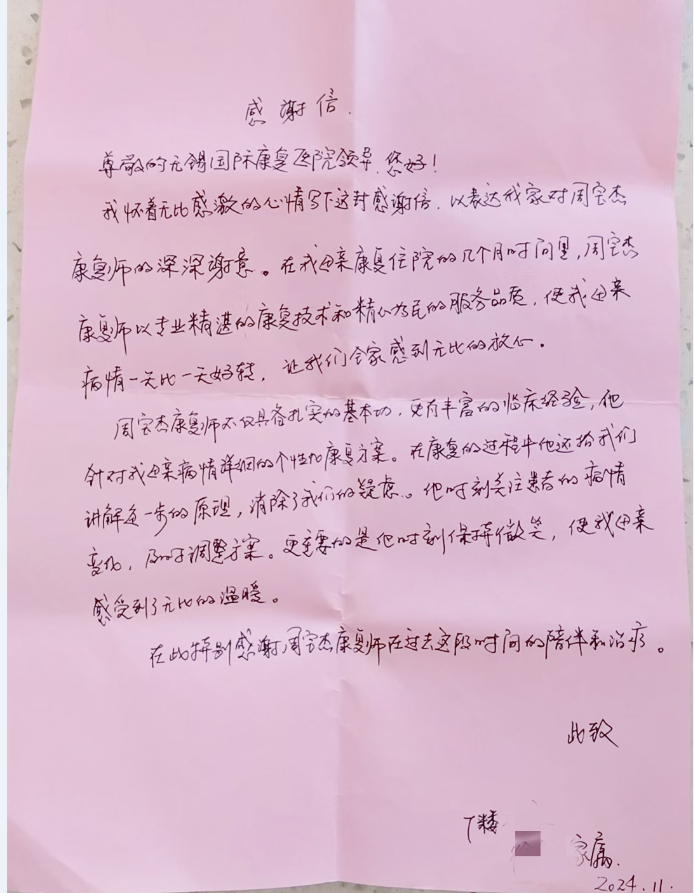 感谢信.
尊敬的无锡国际康复医院领导.您好!
我怀着无比感激的心情写下这封感谢信.以表达我家对周宝杰
康复师的深深谢意。在我母亲康复住院的几个月时间里,周宝杰
康复师以专业精湛的康复技术和精心为民的服务品质,使我母亲
病情一天比一天好转,让我们全家感到无比的放心。
周宝杰康复师不仅具备扎实的基本功,更有丰富的临床经验,他
针对我母亲病情详细的个性加康复方案。在康复的过程中他还给我们
讲解每一步的原理,消除了我们的疑虑。他时刻关注患者的病情
变化,及时调整方案。更主要的是他时刻保持微笑,使我母亲
感受到了无比的温暖。
在此特别感谢周宝杰康复师在过去这段时间的陪伴和治疗。
此致
丁楼
家属.
2024.11.